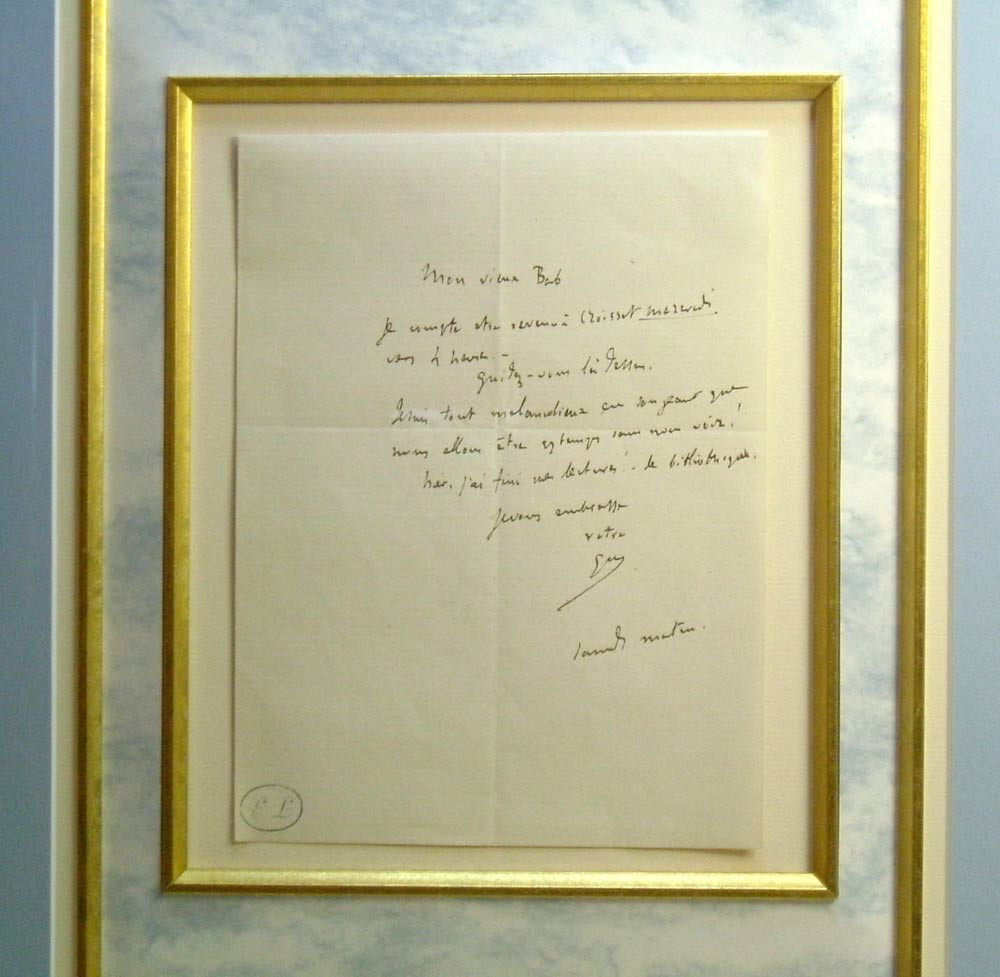 Mon vieux Bob
Je compte etre revenu à Croisset mercredi.
vers 4 heures. -
Guidez-vous là dessus.
Je suis tout melancolieux en songeant que
nous allons être longtemps sans nous voir !
hier, j'ai fini mes lectures ! - de bibliothèque.
Je vous embrasse
votre
Guy
samedi matin.
E L